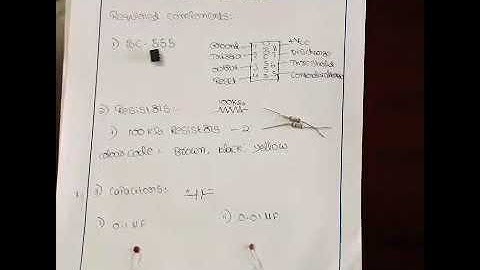 Required components:
1) IC-555
Ground 1 8 +Vcc
Trigger 2 7 Discharge
output 3 6 Threshold
Reset 4 5
2) Resistors :-
100kΩ
1) 100kΩ Resistors - 2
colour code : Brown, black, yellow
3) capacitors :-
1) 0.1 MF
2) 0.01 MF